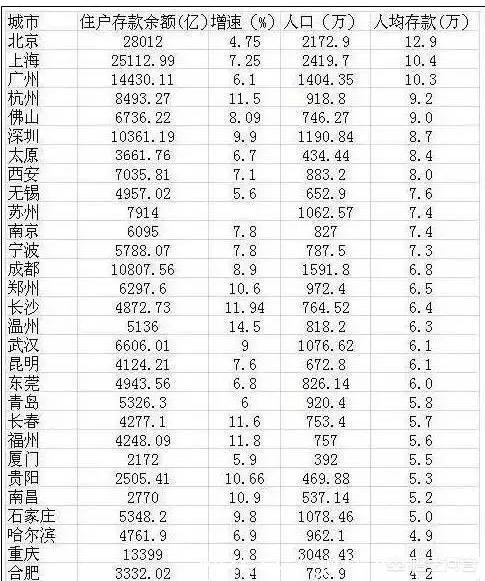 城市 住户存款余额(亿) 增速（%） 人口（万） 人均存款(万)
北京 28012 4.75 2172.9 12.9
上海 25112.99 7.25 2419.7 10.4
广州 14430.11 6.1 1404.35 10.3
杭州 8493.27 11.5 918.8 9.2
佛山 6736.22 8.09 746.27 9.0
深圳 10361.19 9.9 1190.84 8.7
太原 3661.76 6.7 434.44 8.4
西安 7035.81 7.1 883.2 8.0
无锡 4957.02 5.6 652.9 7.6
苏州 7914 1062.57 7.4
南京 6095 7.8 827 7.4
宁波 5788.07 7.8 787.5 7.3
成都 10807.56 8.9 1591.8 6.8
郑州 6297.6 10.6 972.4 6.5
长沙 4872.73 11.94 764.52 6.4
温州 5136 14.5 818.2 6.3
武汉 6606.01 9 1076.62 6.1
昆明 4124.21 7.6 672.8 6.1
东莞 4943.56 6.8 826.14 6.0
青岛 5326.3 6 920.4 5.8
长春 4277.1 11.6 753.4 5.7
福州 4248.09 11.8 757 5.6
厦门 2172 5.9 392 5.5
贵阳 2505.41 10.66 469.88 5.3
南昌 2770 10.9 537.14 5.2
石家庄 5348.2 9.8 1078.46 5.0
哈尔滨 4761.9 6.9 962.1 4.9
重庆 13399 9.8 3048.43 4.4
合肥 3332.02 9.4 4.2